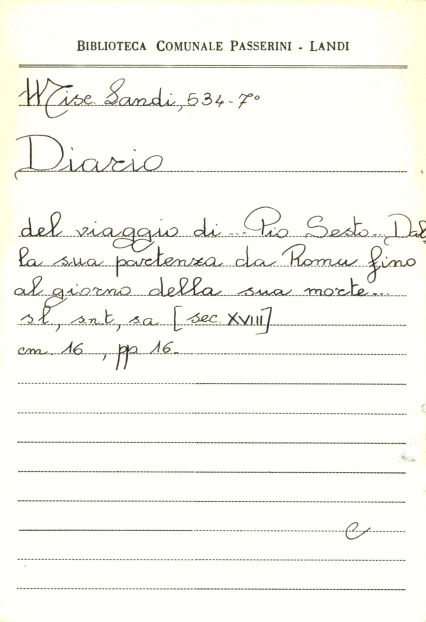 BIBLIOTECA COMUNALE PASSERINI - LANDI
Misc. Landi, 534-7°
Diario
del viaggio di... Pio Sesto... Dal
la sua partenza da Roma fino
al giorno della sua morte...
sl, snt, sa [sec. XVIII]
cm. 16, pp 16.
C